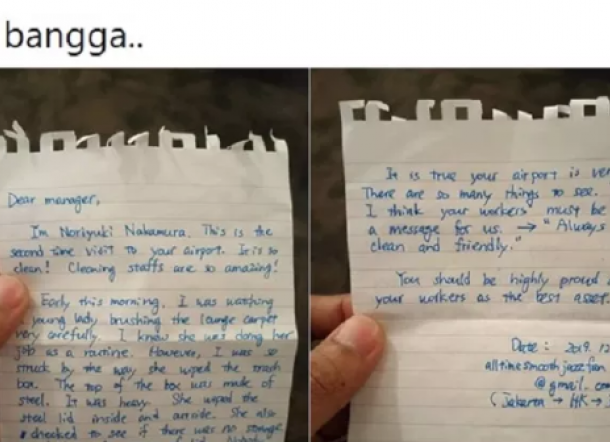 bangga..
Dear manager,
I'm Noriyuki Nakamura. This is the
second time visit to your airport. It is so
clean! Cleaning staffs are so amazing!
Early this morning, I was watching
young lady brushing the lounge carpet
very carefully. I know she was doing her
job as a routine. However, I was so
struck by the way she wiped the trash
box. The top of the box was made of
steel. It was heavy. She wiped the
steel lid inside and outside. She also
checked to see if there was no
It is true your airport is
There are so many things to see.
I think your workers must be
a message for us. → "Always
clean and friendly."
You should be highly proud
your workers as the best asset
Date: 2019. 12
alltimesmoothjazzfan
@gmail.co
(Jakarta → HK →